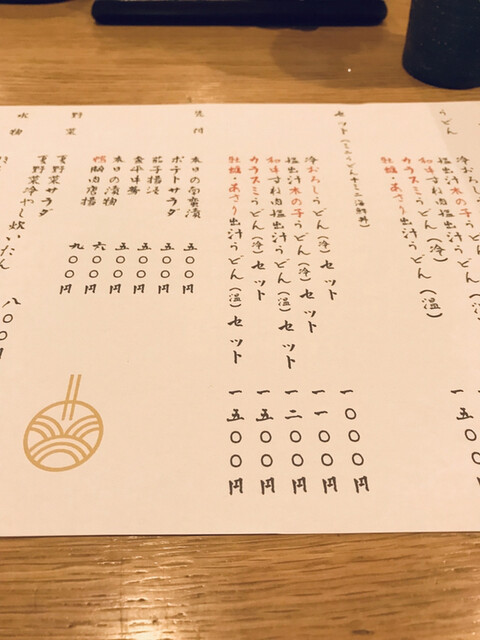 うどん
冷おろしうどん(冷)
塩出汁木の子うどん
和牛すね肉塩出汁うどん(温)
カラスミうどん(冷)
牡蠣・あさり出汁うどん(温)
一五〇〇円
セット(ミニうどん+ミニ海鮮丼)
冷おろしうどん(冷)セット 一〇〇〇円
塩出汁木の子うどん(冷)セット 一一〇〇円
和牛すね肉塩出汁うどん(温)セット 一二〇〇円
カラスミうどん(冷)セット 一五〇〇円
牡蠣・あさり出汁うどん(温)セット 一五〇〇円
先付
本日の南蛮漬 五〇〇円
ポテトサラダ 五〇〇円
茄子揚浸 五〇〇円
金平牛蒡 五〇〇円
本日の漬物 六〇〇円
鴨胸肉唐揚 九〇〇円
野菜
夏野菜サラダ
夏野菜冷やし炊いたん 八〇〇円